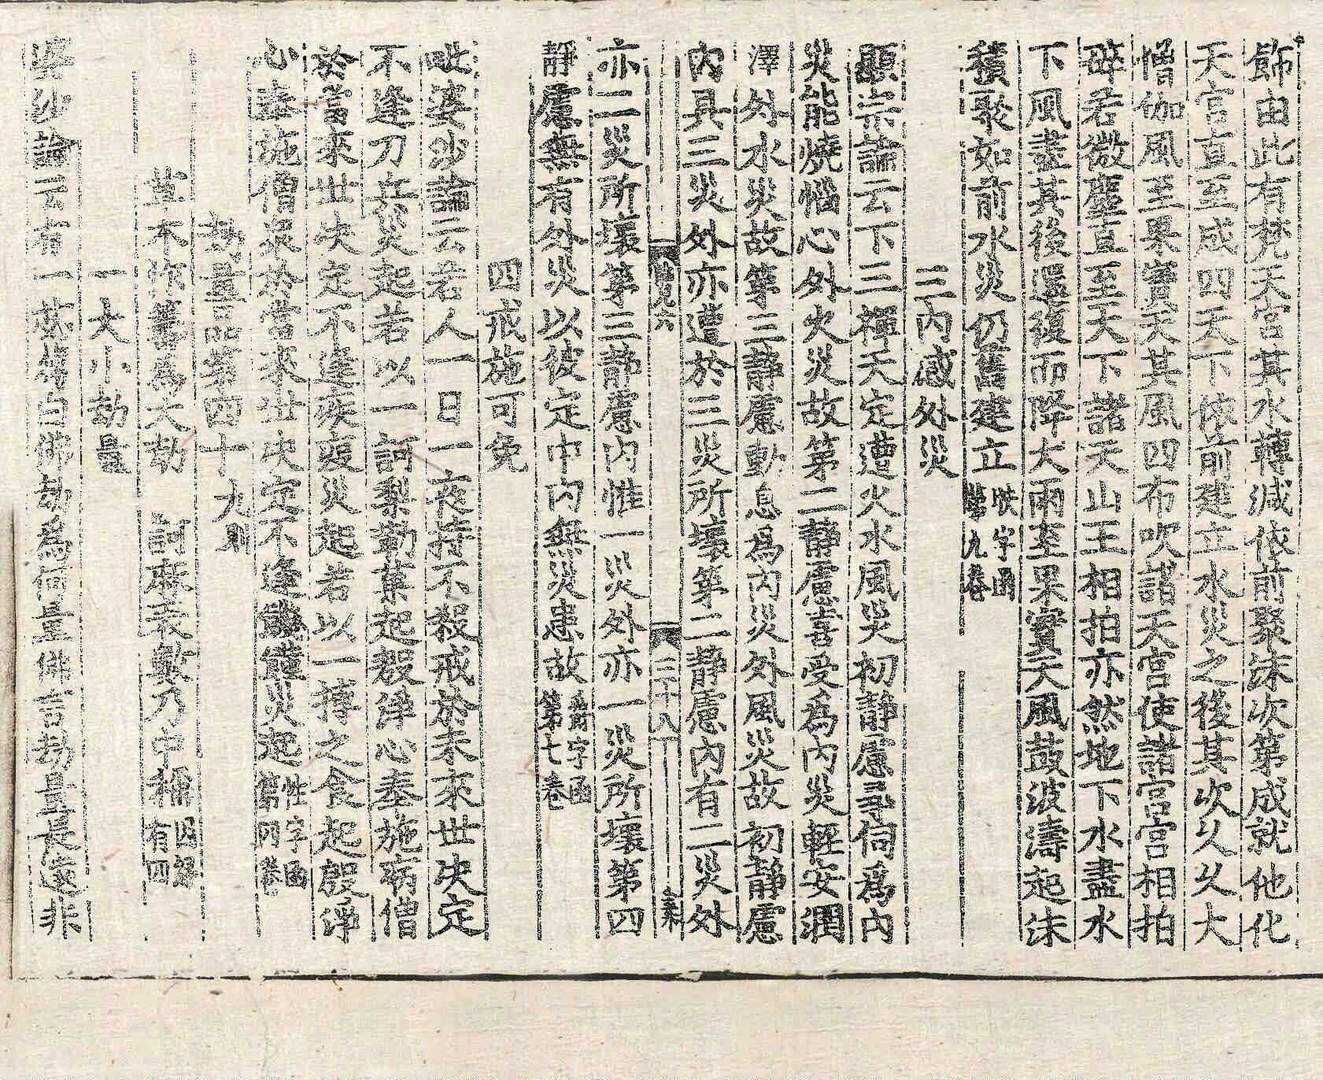 飾由此有梵天宮其水轉減依前聚沫次第成就他化
天宮直至成四天下依前建立水災之後其次久久大
僧伽風至果實天其風四布吹諸天宮使諸宮宮相拍
碎若微塵直至天下諸天山王相拍亦然地下水盡水
下風盡其後還復而降大雨至果實天風鼓波濤起沫
積聚如前水災仍舊建立
字函
九卷
三內感外災
顯宗論云下三禪天定遭火水風災初靜慮尋伺為內
災能燒惱心外火災故第二靜慮喜受為內災輕安潤
澤外水災故第三靜慮動息為內災外風災故初靜慮
內具三災外亦遭於三災所壞第二靜慮內有二災外
六
二十八
亦二災所壞第三靜慮內惟一災外亦一災所壞第四
靜慮無有外災以彼定中內無災患故
爵字函
第七卷
四戒施可免
毗婆沙論云若人一日一夜持不殺戒於未來世決定
不逢刀兵災起若以一訶梨勒菓起殷淨心奉施病僧
於當來世決定不逢疾疫災起若以一摶之食起殷淨
心奉施僧衆於當來世決定不逢饑饉災起
性字函
第四卷
劫量品第四十
九則
並木作籌為大劫
訶麻表數乃中稱
因緣
有四
一大小劫量
婆沙論云有一苾蒭白佛劫為何量佛言劫量長遠非